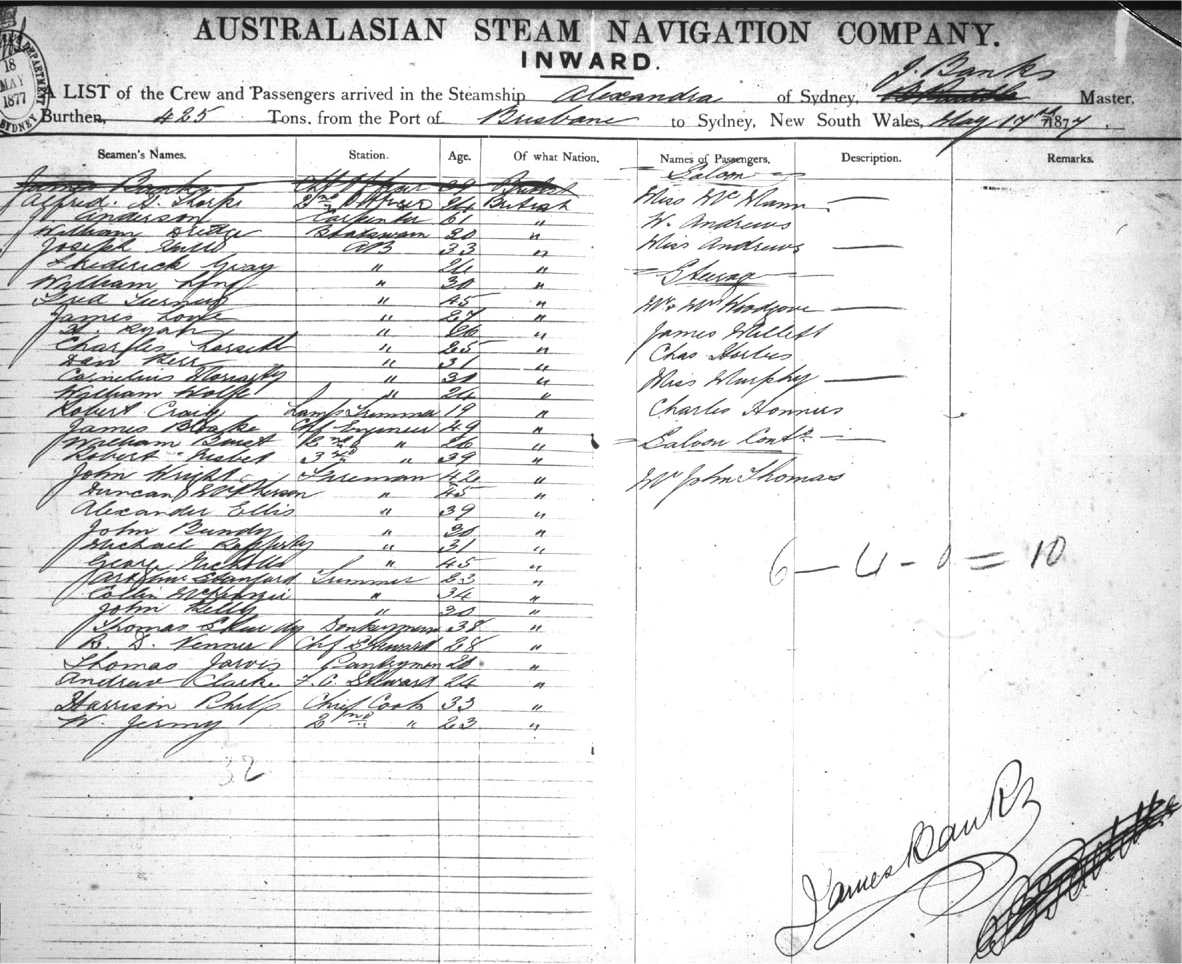 AUSTRALASIAN STEAM NAVIGATION COMPANY.
INWARD.
18 MAY 1877
SYDNEY
J. Banks
A LIST of the Crew and Passengers arrived in the Steamship Alexandra of Sydney, Master.
Burthen, 425 Tons. from the Port of Brisbane to Sydney, New South Wales, May 17th 1877
Seamen's Names. Station. Age. Of what Nation. Names of Passengers. Description. Remarks.
James Banks Chf Officer 29 British
Alfred. H. Thorpe 2nd Officer 24 British
Anderson Carpenter 61 "
William Boatswain 30 "
Joseph AB 33 "
Frederick Gray " 24 "
William King " 30 "
Fred " 45 "
James " 27 "
Ryan " 26 "
Charles " 25 "
Dan Kerr " 31 "
Cornelius Moriarty " 30 "
William Wolfe " 24 "
Robert Craig Lamp Trimmer 19 "
James Blake Chf Engineer 49 "
William 2nd " 26 "
Robert Nesbet 3rd " 39 "
John Wright Fireman 42 "
Duncan McPherson " 45 "
Alexander Ellis " 39 "
John Bundy " 30 "
Michael Rafferty " 31 "
George Nicholls " 45 "
Stanford Trimmer 23 "
Collin McKenzie " 34 "
John Kelly " 30 "
Thomas Donkeyman 38 "
R. D. Venner Chf Steward 28 "
Thomas Jarvis Pantryman 20 "
Andrew Clarke F. C. Steward 24 "
Harrison Philp Chief Cook 33 "
W. Jermy 2nd " 23 "
32
Saloon
Miss McMann
W. Andrews
Miss Andrews
Steerage
James Millett
Chas
Miss Murphy
Charles Honners
Saloon Contd
Mr John Thomas
6 - 4 - 0 = 10
James Banks